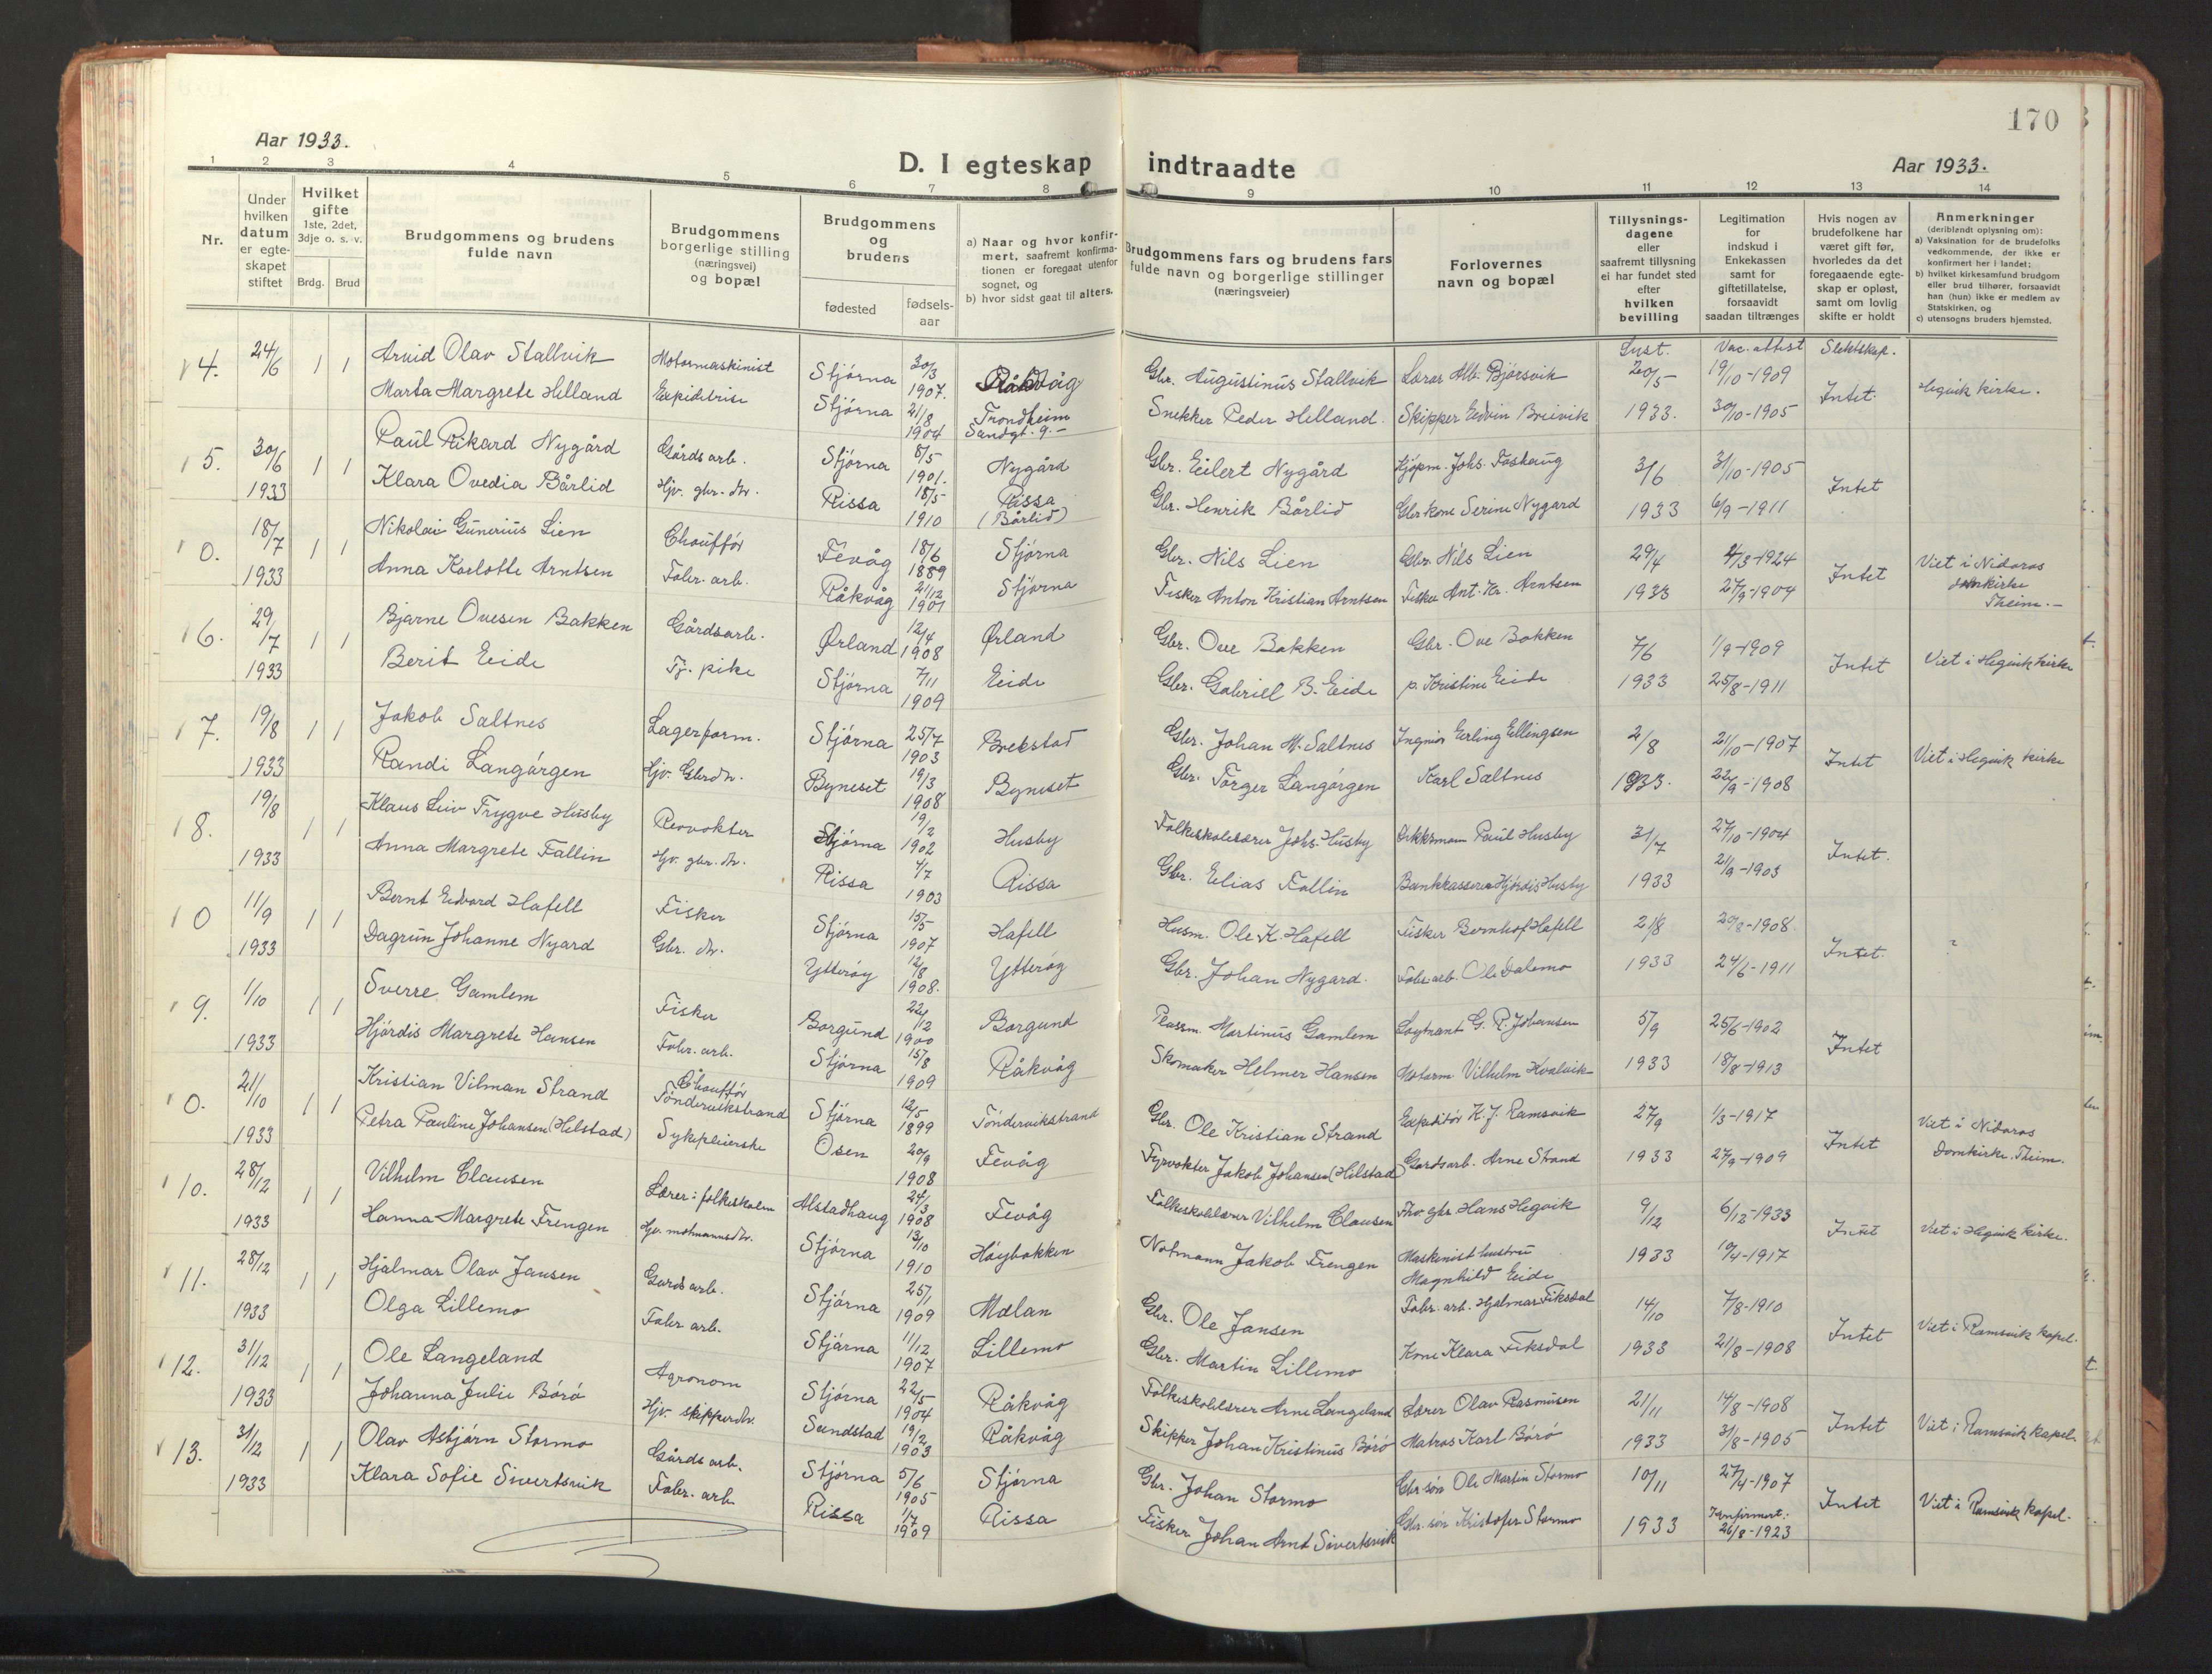 170
Aar 1933.
D. I egteskap indtraadte
Aar 1933.
1 2 3 4 5 6 7 8 9 10 11 12 13 14
Nr.
Under hvilken datum er egteskapet stiftet
Hvilket gifte 1ste, 2det, 3dje o. s. v.
Brdg. Brud
Brudgommens og brudens fulde navn
Brudgommens borgerlige stilling (næringsvei) og bopæl
Brudgommens og brudens
fødested
fødselsaar
a) Naar og hvor konfirmert, saafremt konfirmationen er foregaat utenfor sognet, og
b) hvor sidst gaat til alters.
Brudgommens fars og brudens fars fulde navn og borgerlige stillinger (næringsveier)
Forlovernes navn og bopæl
Tillysningsdagene eller saafremt tillysning ei har fundet sted efter hvilken bevilling
Legitimation for indskud i Enkekassen samt for giftetillatelse, forsaavidt saadan tiltrænges
Hvis nogen av brudefolkene har været gift før, hvorledes da det foregaaende egteskap er opløst, samt om lovlig skifte er holdt
Anmerkninger (deriblandt oplysning om):
a) Vaksination for de brudefolks vedkommende, der ikke er konfirmert her i landet;
b) hvilket kirkesamfund brudgom eller brud tilhører, forsaavidt han (hun) ikke er medlem av Statskirken, og
c) utensogns bruders hjemsted.
Lyst. Vac. attest Slektskap.
4. 24/6 1 1 Arvid Olav Stallvik Motormaskinist Stjørna 20/3 1907. Råkvåg Gbr. Augustinus Stallvik Lærer Alb. Bjørsvik 20/5- 19/10-1909 Intet. Hegvik kirke.
Marta Margrete Helland Expeditrise Stjørna 21/8 1904 Trondheim Sandgt. 9.- Snekker Peder Helland. Skipper Edvin Breivik 1933. 30/10-1905
5. 30/6 1 1 Paul Rikard Nygård Gårdsarb. Stjørna 8/5 1901. Nygård Gbr. Eilert Nygård Kjøpm. Johs. Foshaug 3/6 31/10-1905 Intet
1933 Klara Ovedia Bårlid Hjv. gbr. dtr. Rissa 18/5- 1910 Rissa (Bårlid) Gbr. Henrik Bårlid Gbr kone Serine Nygard 1933 6/9-1911
0. 18/7 1 1 Nikolai Gunerius Lien Chauffør Fevåg 18/6 1889 Stjørna Gbr. Nils Lien Gbr. Nils Lien 29/4 4/3-1924 Intet Viet i Nidaros domkirke Theim.-
1933 Anna Karlotte Arntsen Fabr. arb. Råkvåg 21/12 1901 Stjørna Fisker Anton Kristian Arntsen Fisker Ant. Kr. Arntsen 1933 27/9-1904
6. 29/7 1 1 Bjarne Ovesen Bakken Gårdsarb. Ørland 12/4 1908 Ørland Gbr. Ove Bakken Gbr. Ove Bakken 7/6 1/9-1909 Intet Viet i Hegvik kirke
1933 Berit Eide Tj. pike Stjørna 7/11 1909 Eide Gbr. Gabriel B. Eide p. Kristine Eide 1933 25/8-1911
7. 19/8 1 1 Jakob Saltnes Lagerform. Stjørna 25/7 1903 Brekstad Gbr. Johan M. Saltnes Ingniør Erling Ellingsen 2/8 21/10-1907 Intet Viet i Hegvik kirke
1933 Randi Langørgen Hjv. Gbrdtr. Byneset 19/3 1908 Byneset Gbr. Torger Langørgen Karl Saltnes 1933. 22/9-1908
8. 19/8 1 1 Klaus Leiv Trygve Husby Revvokter Stjørna 19/2 1902 Husby Folkeskolelærer Johs. Husby Paul Husby 31/7 27/10-1904 Intet.
1933 Anna Margrete Fallin Hjv. gbr. dtr. Rissa 4/7 1903 Rissa Gbr. Elias Fallin Bankkasserer Hjørdis Husby 1933 21/9-1903
0 11/9 1 1 Bernt Edvard Hafell Fisker Stjørna 15/5- 1907 Hafell Husm. Ole K. Hafell Fisker Bernhof Hafell 21/8 20/8-1908. Intet. ?
1933 Dagrun Johanne Nyard Gbr. dtr. Ytterøy 12/8 1908. Ytterøy Gbr. Johan Nygard. Fabr arb. Ole Dalemo 1933 24/6-1911
9. 1/10 1 1 Sverre Gamlem Fisker Borgund 22/12 1900 Borgund Plassm. Martinus Gamlem Løytnant G. R. Johansen 5/9 25/6-1902 Intet
1933 Hjørdis Margrete Hansen Fabr. arb. Stjørna 15/8 1909 Råkvåg Skomaker Helmer Hansen Motorm Vilhelm Kvalvik 1933 18/8-1913
0. 21/10 1 1 Kristian Vilman Strand Chauffør Tøndervikstrand Stjørna 12/5 1899 Tøndervikstrand Gbr. Ole Kristian Strand Expeditør K. J. Ramsvik 27/9 1/3-1917 Intet Viet i Nidaros Domkirke. Theim.
1933 Petra Pauline Johansen (Helstad) Sykepleierske Osen 20/9 1908 Fevåg Fyrvokter Jakob Johansen (Helstad) Gardsarb. Arne Strand 1933 27/9-1909
10. 28/12 1 1 Vilhelm Clausen Lærer i folkeskolen Alstadhaug 24/3 1908 Fevåg Folkeskolelærer Vilhelm Clausen Thv. gbr. Hans Hegvik 9/12 6/12-1933 Intet Viet i Hegvik kirke.
1933 Hanna Margrete Frengen Hjv. notmannsdtr. Stjørna 13/10 1910 Høybakken Notmann Jakob Frengen Maskinist hustru Magnhild Eide 1933 10/4-1917
11. 28/12 1 1 Hjalmar Olav Jansen Gards arb. Stjørna 25/1 1909 Mælan Gbr. Ole Jansen Fabr. arb. Hjalmar Fiksdal 14/10 7/8-1910 Intet Viet i Ramsvik kapel.
1933 Olga Lillemo Fabr arb. Stjørna 11/12 1907 Lillemo Gbr. Martin Lillemo Kone Klara Fiksdal 1933 21/8-1908
12. 31/12 1 1 Ole Langeland Agronom Stjørna 22/5- 1904 Råkvåg Folkeskolelærer Arne Langeland Lærer Olav Rasmusen 21/11 14/8-1908 Intet Viet i Ramsvik kapel.
1933 Johanna Julie Børø Hjv. skipperdtr. Sundstad 19/2 1903 Råkvåg Skipper Johan Kristinus Børø Matros Karl Børø 1933 31/8-1905
13. 31/12 1 1 Olav Asbjørn Stormo Gårds arb. Stjørna 5/6 1905 Stjørna Gbr. Johan Stormo Gbr søn Ole Martin Stormo 10/11 27/4-1907 Intet Viet i Ramsvik kapel.
1933 Klara Sofie Sivertsvik Fabr. arb. Rissa 1/7 1909 Rissa Fisker Johan Arnt Sivertsvik Gbr. søn Kristofer Stormo 1933 Konfirmert: 26/8-1923